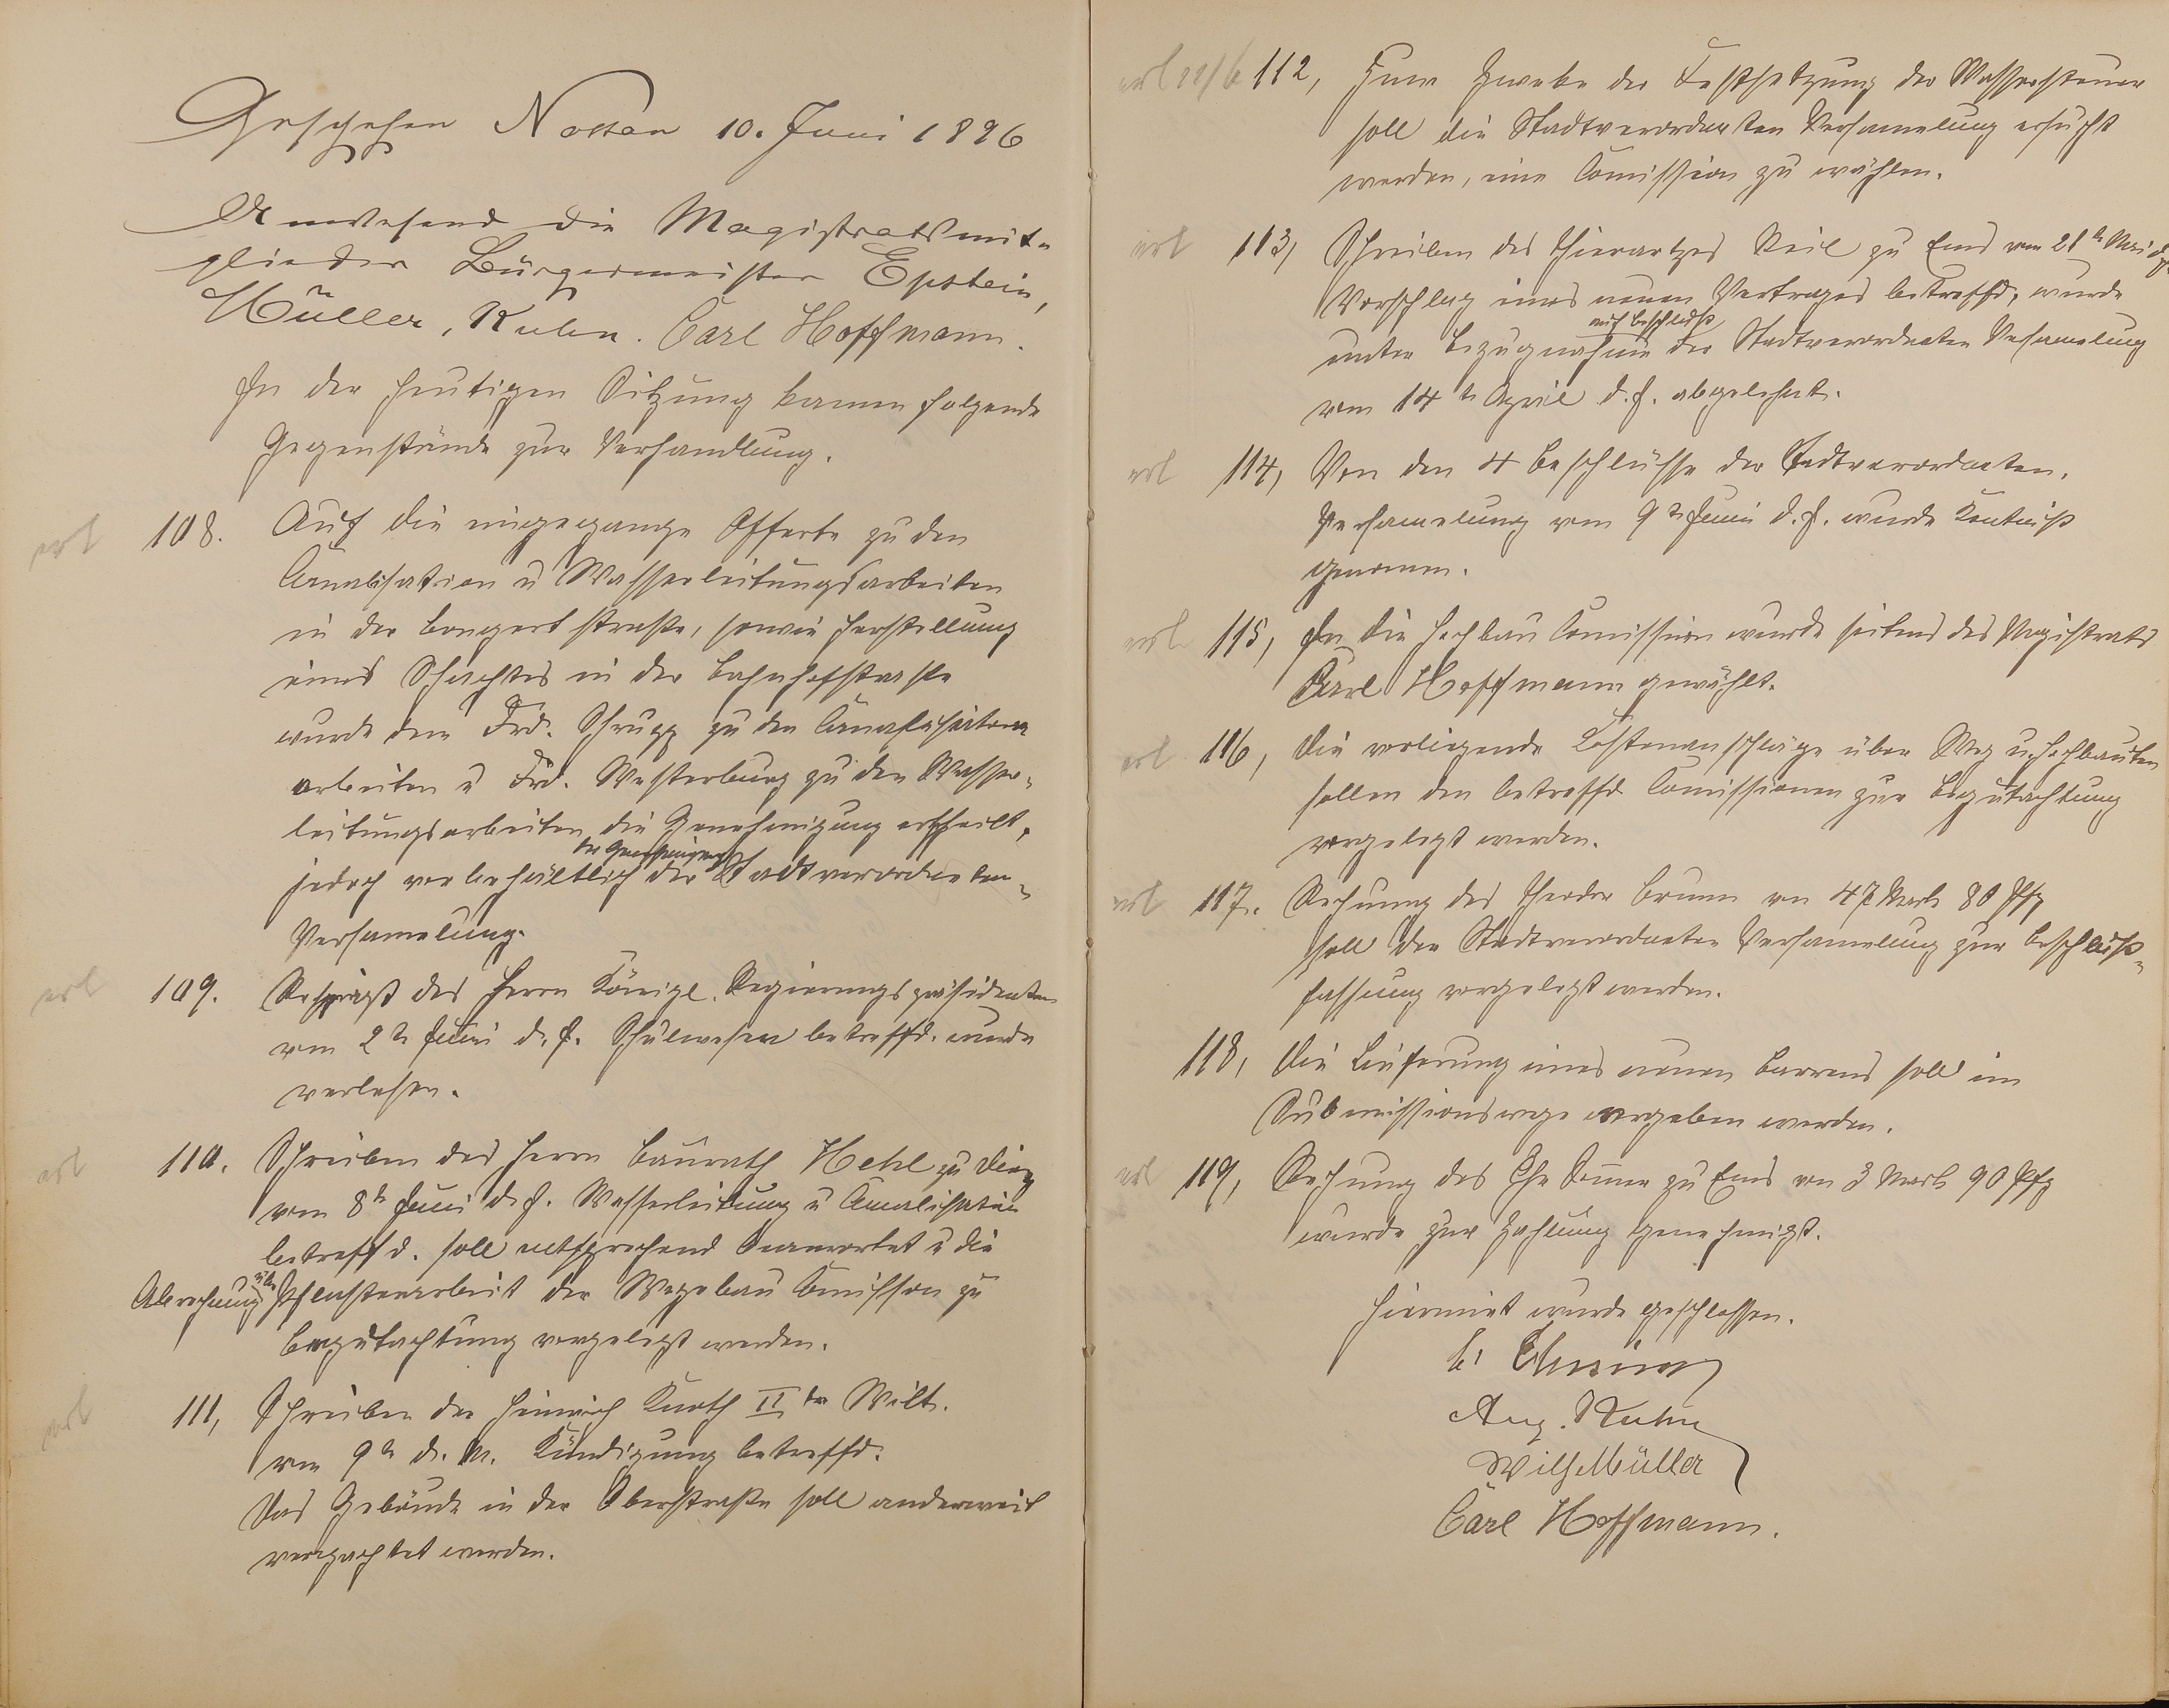 Geschehen Nassau 10. Juni 1896
Anwesend die Magistratsmit-
glieder Bürgermeister Epstein,
Müller, Kuhn. Carl Hoffmann.
In der heutigen Sitzung kamen folgende
Gegenstände zur Verhandlung.
erl 108. Auf die eingegange Offerte zu den
Canalisation u Wasserleitungsarbeiten
in der Bongertstraße, sowie Herstellung
eines Schachtes in der Bahnhofstraße
wurde dem Frd. Schrupp zu den Canalisations
arbeiten u Frd. Westerburg zu den Wasser-
leitungsarbeiten die Genehmigung ertheilt,
jedoch vorbehältlich der Genehmigung der Stadtverordneten-
Versamelung.
erl 109. Rescript des Herrn Königl. Regierungspräsidenten
vom 2te Juni d. J. Schulwesen betreffd. wurde
verlesen.
erl 110. Schreiben des Herrn Baurath Hehl zu Diez
vom 8te Juni d. J. Wasserleitung u Canalisation
betreffd. soll entsprechend beanwortet u die
Abrechnung über Pflasterarbeit der Wegebau Comission zu
Begutachtung vorgelegt werden.
erl 111, Schreiben der Heinrich Knoth IIte Witt.
vom 9te d. M. Kündigung betreffd.
Das Gebäude in der Oberstraße soll anderweit
verpachtet werden.
erl 22/6 112, Zum Zwecke der Festsetzung der Wassersteuer
soll die Stadtverordneten Versamelung ersucht
werden, eine Comission zu wählen.
erl 113, Schreiben des Thierarztes Keil zu Ems vom 21te Mai d J.
Vorschlag eines neuen Vertrages betreffd, wurde
unter Bezugnahme auf Beschluß der Stadtverordneten Versamelung
vom 14te April d. J. abgelehnt.
erl 114, Von den 4 Beschlüsse der Stadtverordneten.
Versamelung vom 9te Juni d. J. wurde Kentniß
genomen.
erl 115, In die Hochbau Comission wurde seitens des Magistrats
Carl Hoffmann gewählt.
erl 116, Die vorliegende Kostenanschläge über Weg u. Hochbauten
sollen den betreffd Comissionen zur Begutachtung
vorgelegt werden.
erl 117. Rechnung des Theodor Brunn von 47 Mark 80 Pfg
soll der Stadtverordneten Versamelung zur Beschluß-
fassung vorgelegt werden.
118, Die Lieferung eines neuen Barrens soll im
Submissionswege vergeben werden.
erl 119, Rechnung des Chr zu Ems von 3 Mark 90 Pfg
wurde zur Zahlung genehmigt.
Hiermit wurde geschlossen.
Aug. Kuhn
Wilh Müller
Carl Hoffmann.